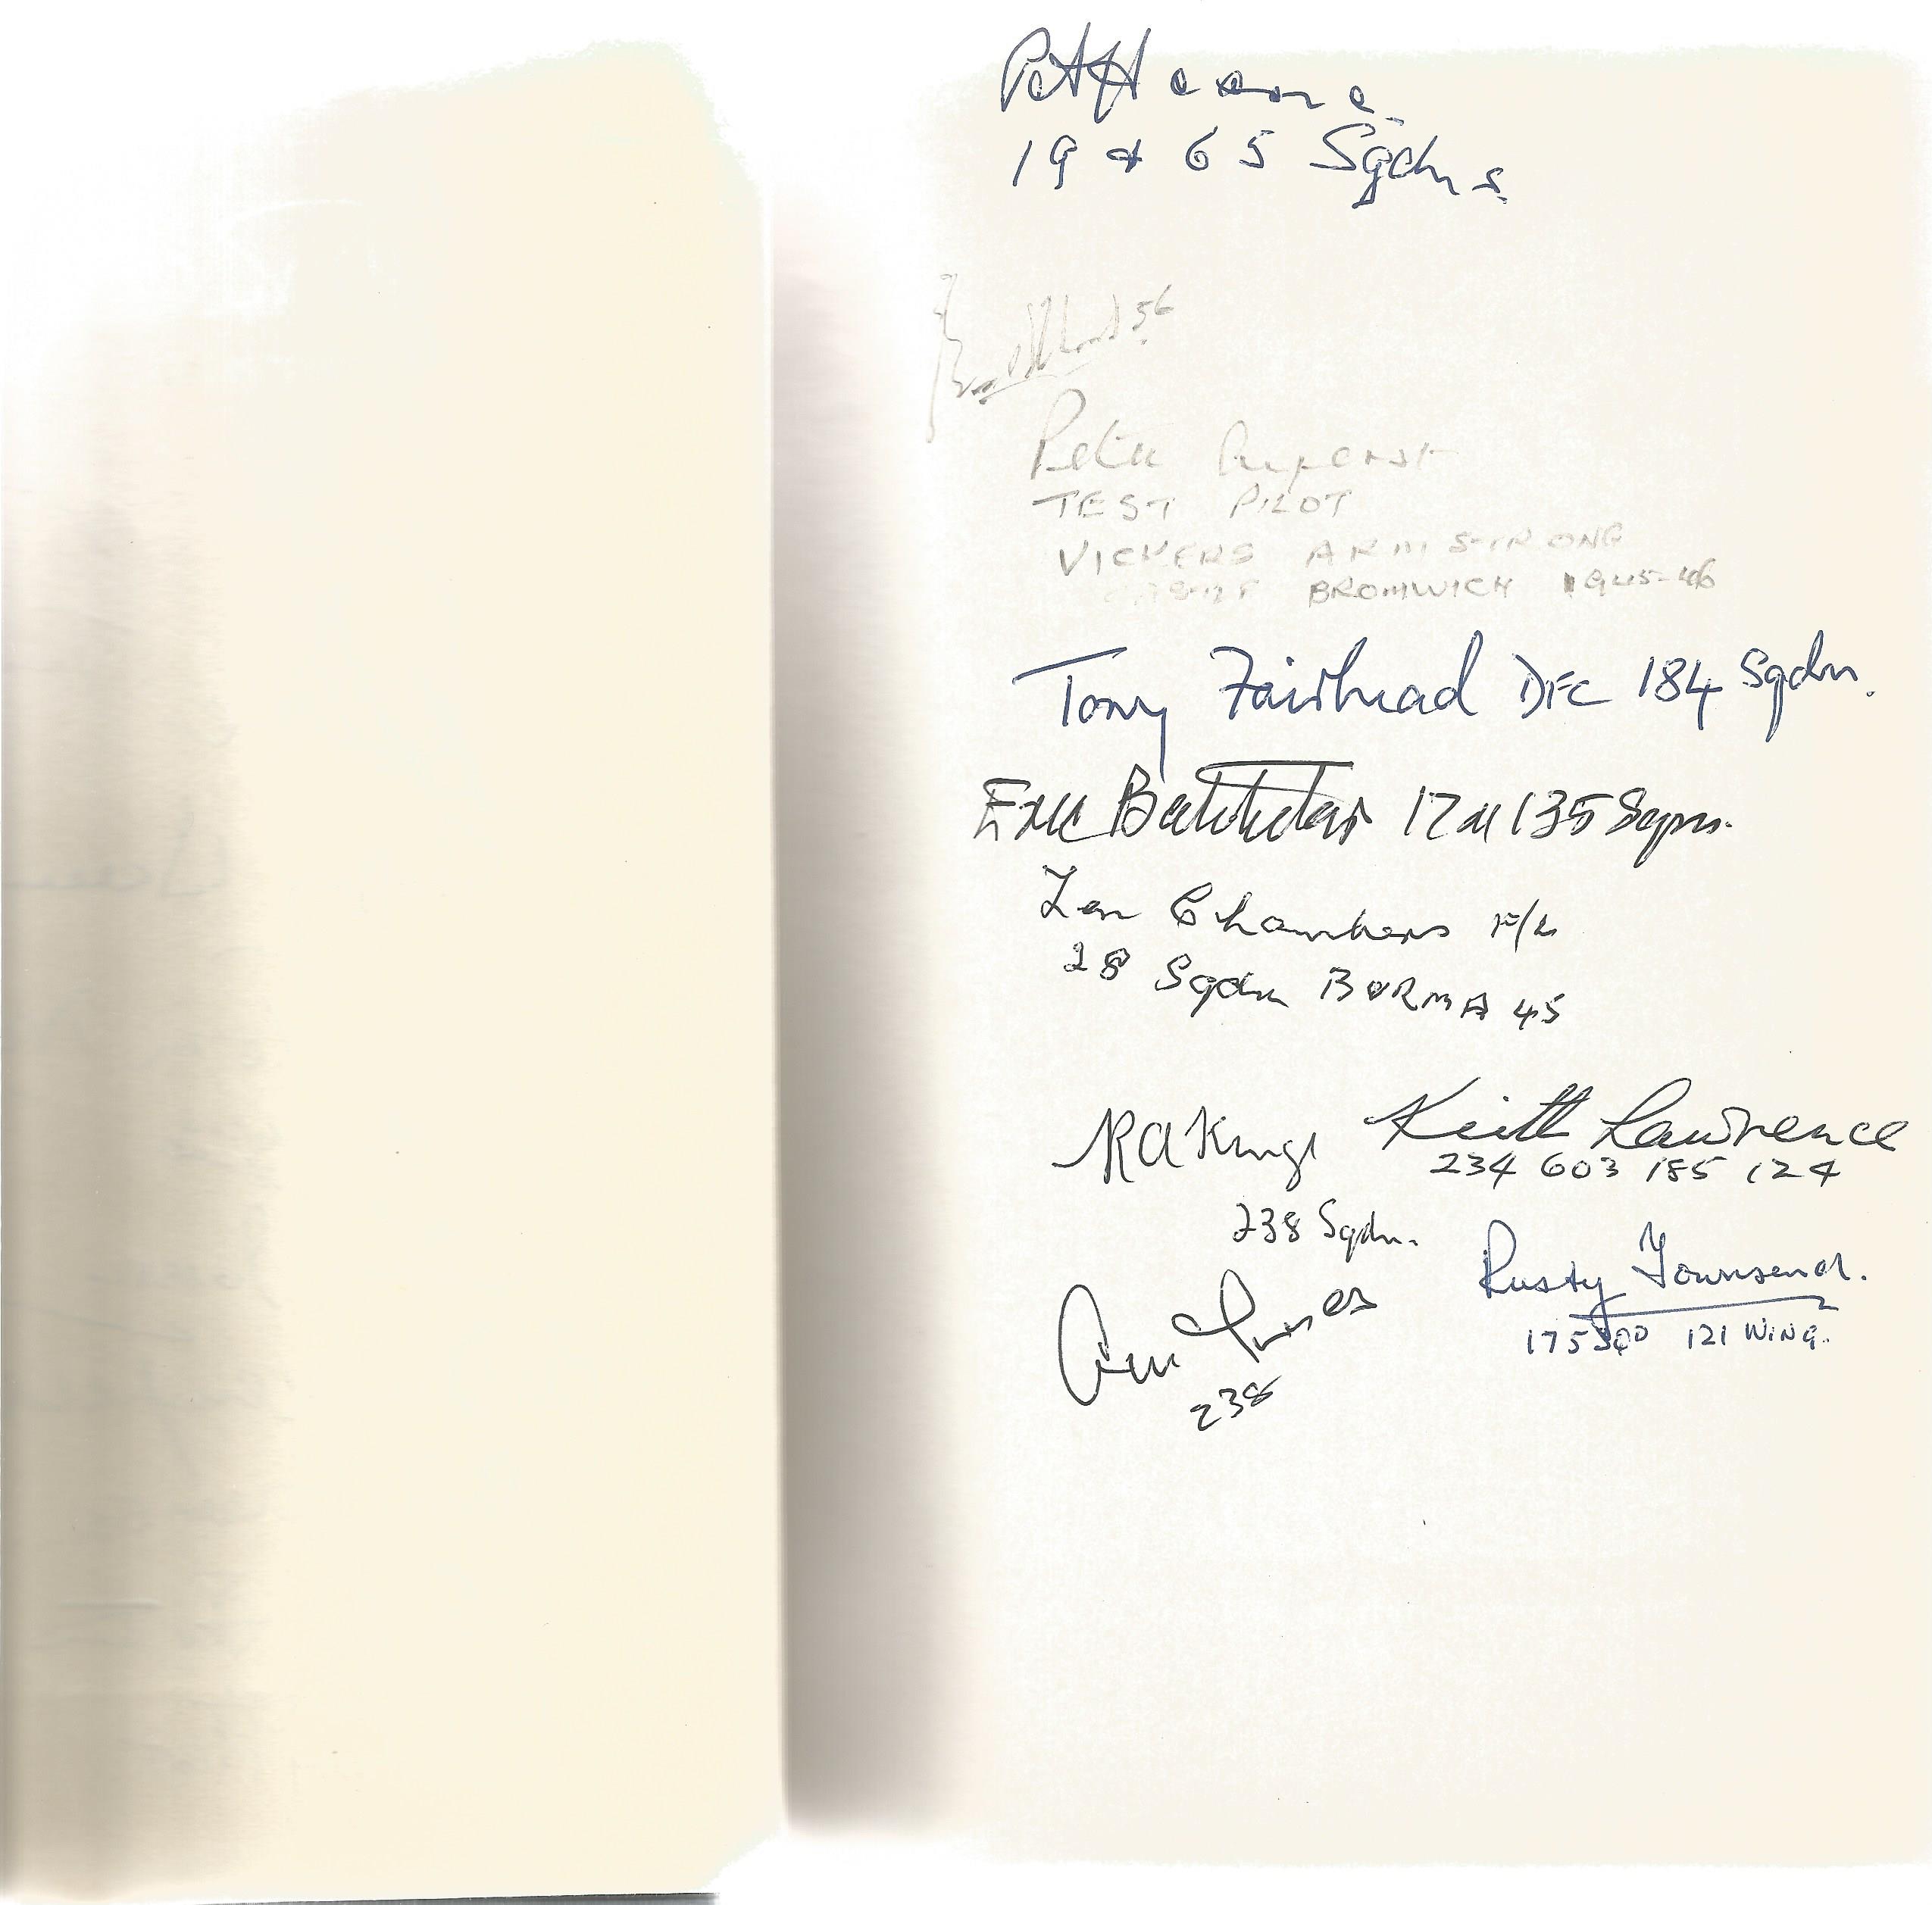 P A Hearne
19 & 65 Sqdns.
56
Peter
TEST PILOT
VICKERS ARMSTRONG
BROMWICH 1945-46
Tony Fairhead DFC 184 Sqdn.
Eric Batchelar 17 & 135 Sqns.
Len Chambers F/L
28 Sqdn BURMA 45
RA Kings
238 Sqdn.
Keith Lawrence
234 603 185 124
Rusty Townsend.
175 SQD 121 WING.
238